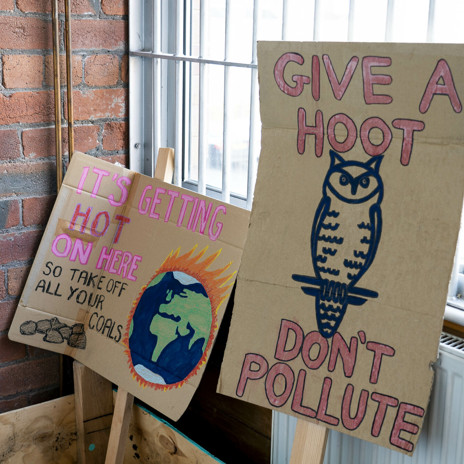 IT'S GETTING
HOT
ON HERE
SO TAKE OFF
ALL YOUR
COALS
GIVE A
HOOT
DON'T
POLLUTE